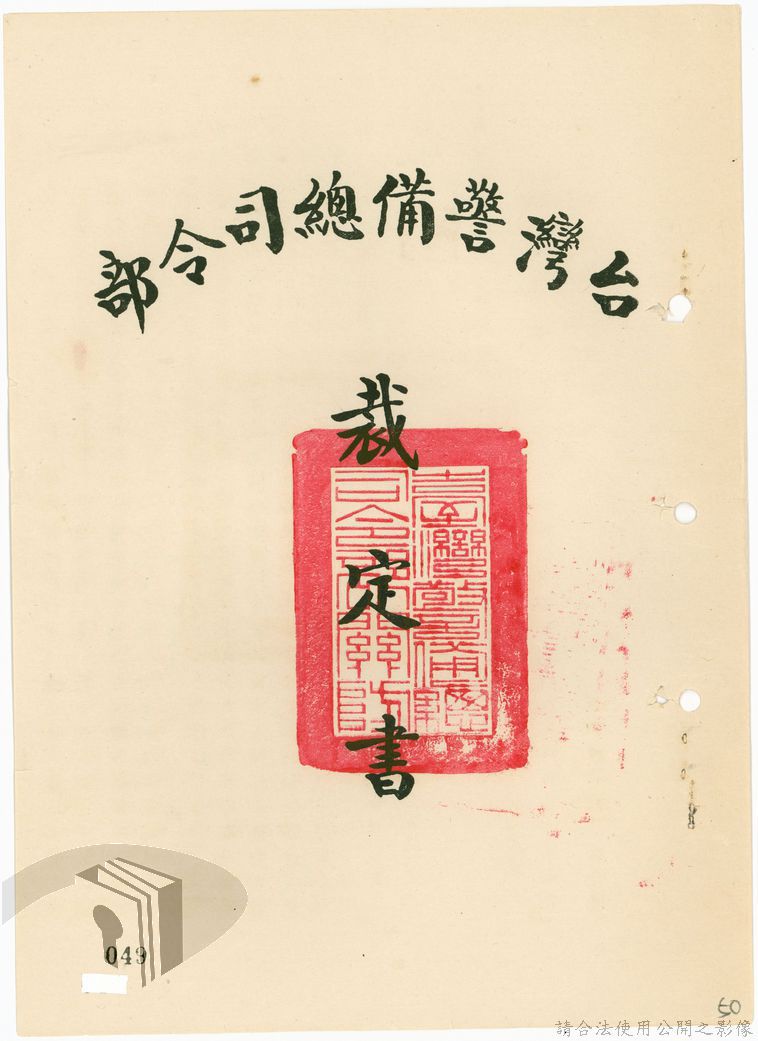 台灣警備總司令部
裁定書
臺灣警備總
司令部關防
049
50
請合法使用公開之影像